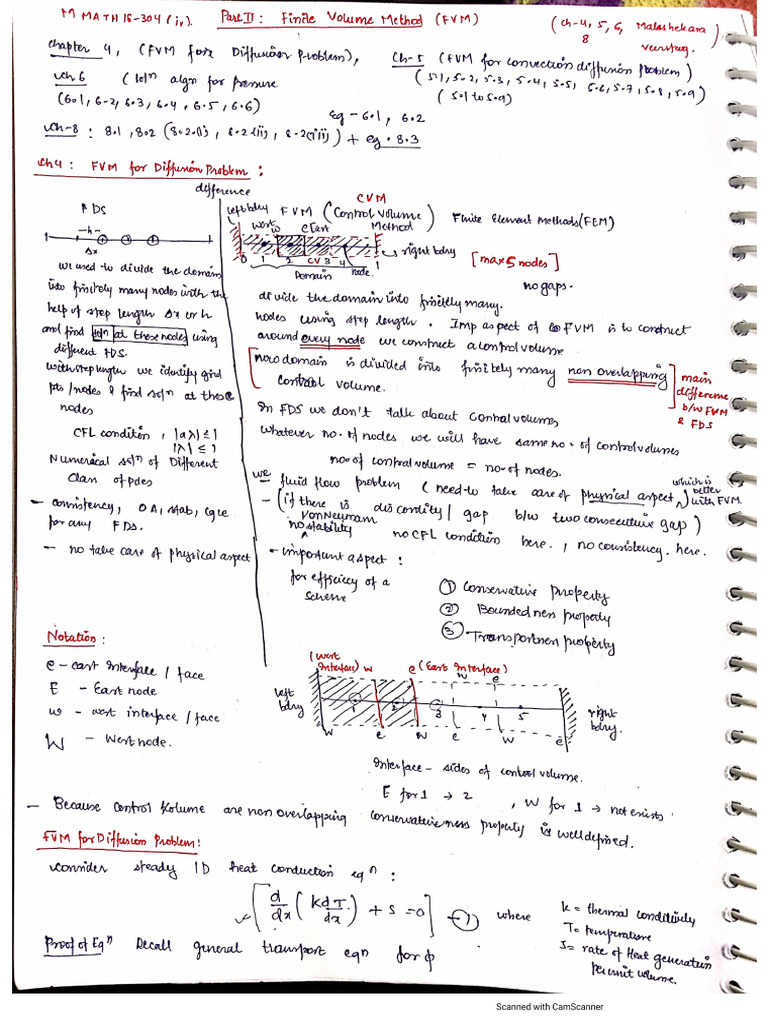 M MATH 18-304 (iv). Part II : Finite Volume Method (FVM) (Ch-4, 5, 6, 8 Malashekara verstag.)
chapter 4, (FVM for Diffusion Problem), Ch-5 (FVM for convection diffusion Problem)
(5.1, 5.2, 5.3, 5.4, 5.5, 5.6, 5.7, 5.8, 5.9)
Ch 6 (solⁿ algn for pressure
(5.1 to 5.9)
(6.1, 6.2, 6.3, 6.4, 6.5, 6.6) eg - 6.1, 6.2
Ch-8 : 8.1, 8.2 (8.2(i), 8.2(ii), 8.2(iii)) + eg. 8.3
Ch 4 : FVM for Diffusion Problem :
difference
FDS
h
Δx
we used to divide the domain
into finitely many nodes with the
help of step length Δx or h
and find solⁿ at those nodes using
different FDS.
with step length we identify grid
pts/nodes & find solⁿ at those
nodes
CFL condition, |aλ| ≤ 1
|λ| ≤ 1
Numerical solⁿ of Different
Class of pdes
- consistency, OA, stab, cgce
for any FDS.
- no take care of physical aspect
CVM
left bdry FVM (Control Volume Method) Finite Element methods (FEM)
west w e East
right bdry [max 5 nodes]
0 1 2 CV 3 4 1
Domain node.
no gaps.
divide the domain into finitely many.
nodes using step length. Imp aspect of FVM is to construct
around every node we construct a control volume
now domain is divided into finitely many non overlapping
control volume.
main difference b/w FVM & FDS
In FDS we don't talk about Control volumes
Whatever no. of nodes we will have same no. of control volumes
no. of control volume = no. of nodes.
we fluid flow problem (need to take care of physical aspect) which is better with FVM
- (if there is discontity / gap b/w two consecutive gap)
Von Neumann
no stability no CFL condition here., no consistency. here.
- important aspect :
for efficicy of a
scheme
① Conservative Property
② Boundedness property
③ Transportness property
Notation :
e - east interface / face
E - East node
w - west interface / face
W - West node.
(West Interface) w e (East Interface)
w e
left bdry
1 2 3 4 5
right bdry.
w e w e w e
Interface - sides of control volume.
E for 1 → 2 , W for 1 → not exists
- Because control volume are non overlapping conservativeness property is well defined.
FVM for Diffusion Problem :
consider steady 1D heat conduction eqⁿ :
[d/dx (k dT/dx) + S = 0] - ① where
k = thermal conditively
T = temperature
S = rate of Heat generation
per unit volume.
Proof of Eqⁿ Recall general transport eqn for ϕ
Scanned with CamScanner